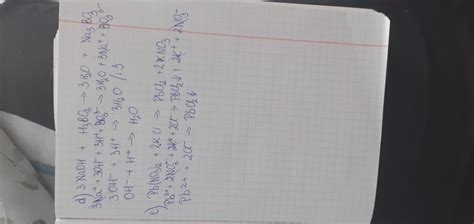 d) 3 NaOH + H₃BO₃ → 3H₂O + Na₃BO₃
3Na⁺ + 3OH⁻ + 3H⁺ + BO₃³⁻ → 3H₂O + 3Na⁺ + BO₃³⁻
3OH⁻ + 3H⁺ → 3H₂O /:3
OH⁻ + H⁺ → H₂O
e) Pb(NO₃)₂ + 2KCl → PbCl₂ + 2KNO₃
Pb²⁺ + 2NO₃⁻ + 2K⁺ + 2Cl⁻ → PbCl₂↓ + 2K⁺ + 2NO₃⁻
Pb²⁺ + 2Cl⁻ → PbCl₂↓